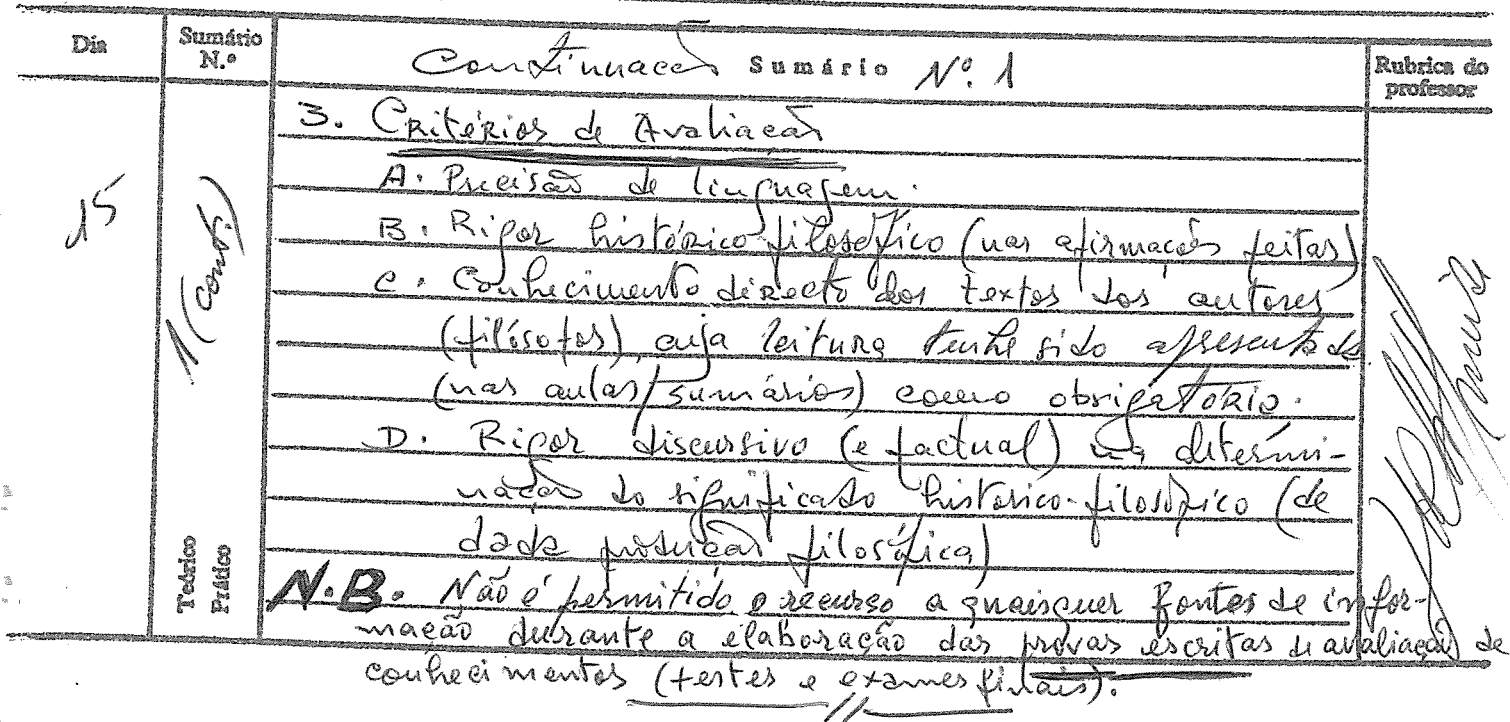 Dia
Sumário N.º
Continuação Sumário Nº. 1
Rubrica do professor
15
1 (cont.)
Teórico
Prático
3. Critérios de Avaliação
A. Precisão de linguagem.
B. Rigor histórico-filosófico (nas afirmações feitas)
C. Conhecimento directo dos textos dos autores
(filósofos), cuja leitura tenha sido apresentada
(nas aulas/sumários) como obrigatória.
D. Rigor discursivo (e factual) na determi-
nação do significado histórico-filosófico (de
dada produção filosófica)
N.B. Não é permitido o recurso a quaisquer fontes de infor-
mação durante a elaboração das provas escritas de avaliação de
conhecimentos (testes e exames finais).